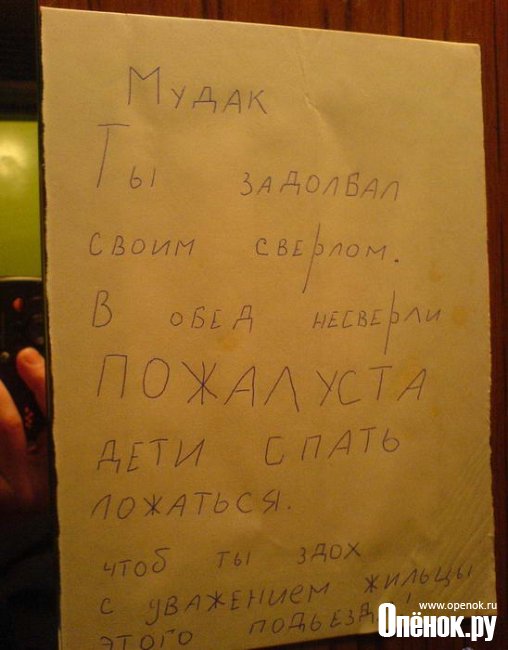 МУДАК
ТЫ ЗАДОЛБАЛ
СВОИМ СВЕРЛОМ.
В ОБЕД НЕСВЕРЛИ
ПОЖАЛУСТА
ДЕТИ СПАТЬ
ЛОЖАТЬСЯ.
ЧТОБ ТЫ ЗДОХ
С УВАЖЕНИЕМ ЖИЛЬЦЫ
ЭТОГО ПОДЬЕЗДА!
www.openok.ru
Опёнок.ру